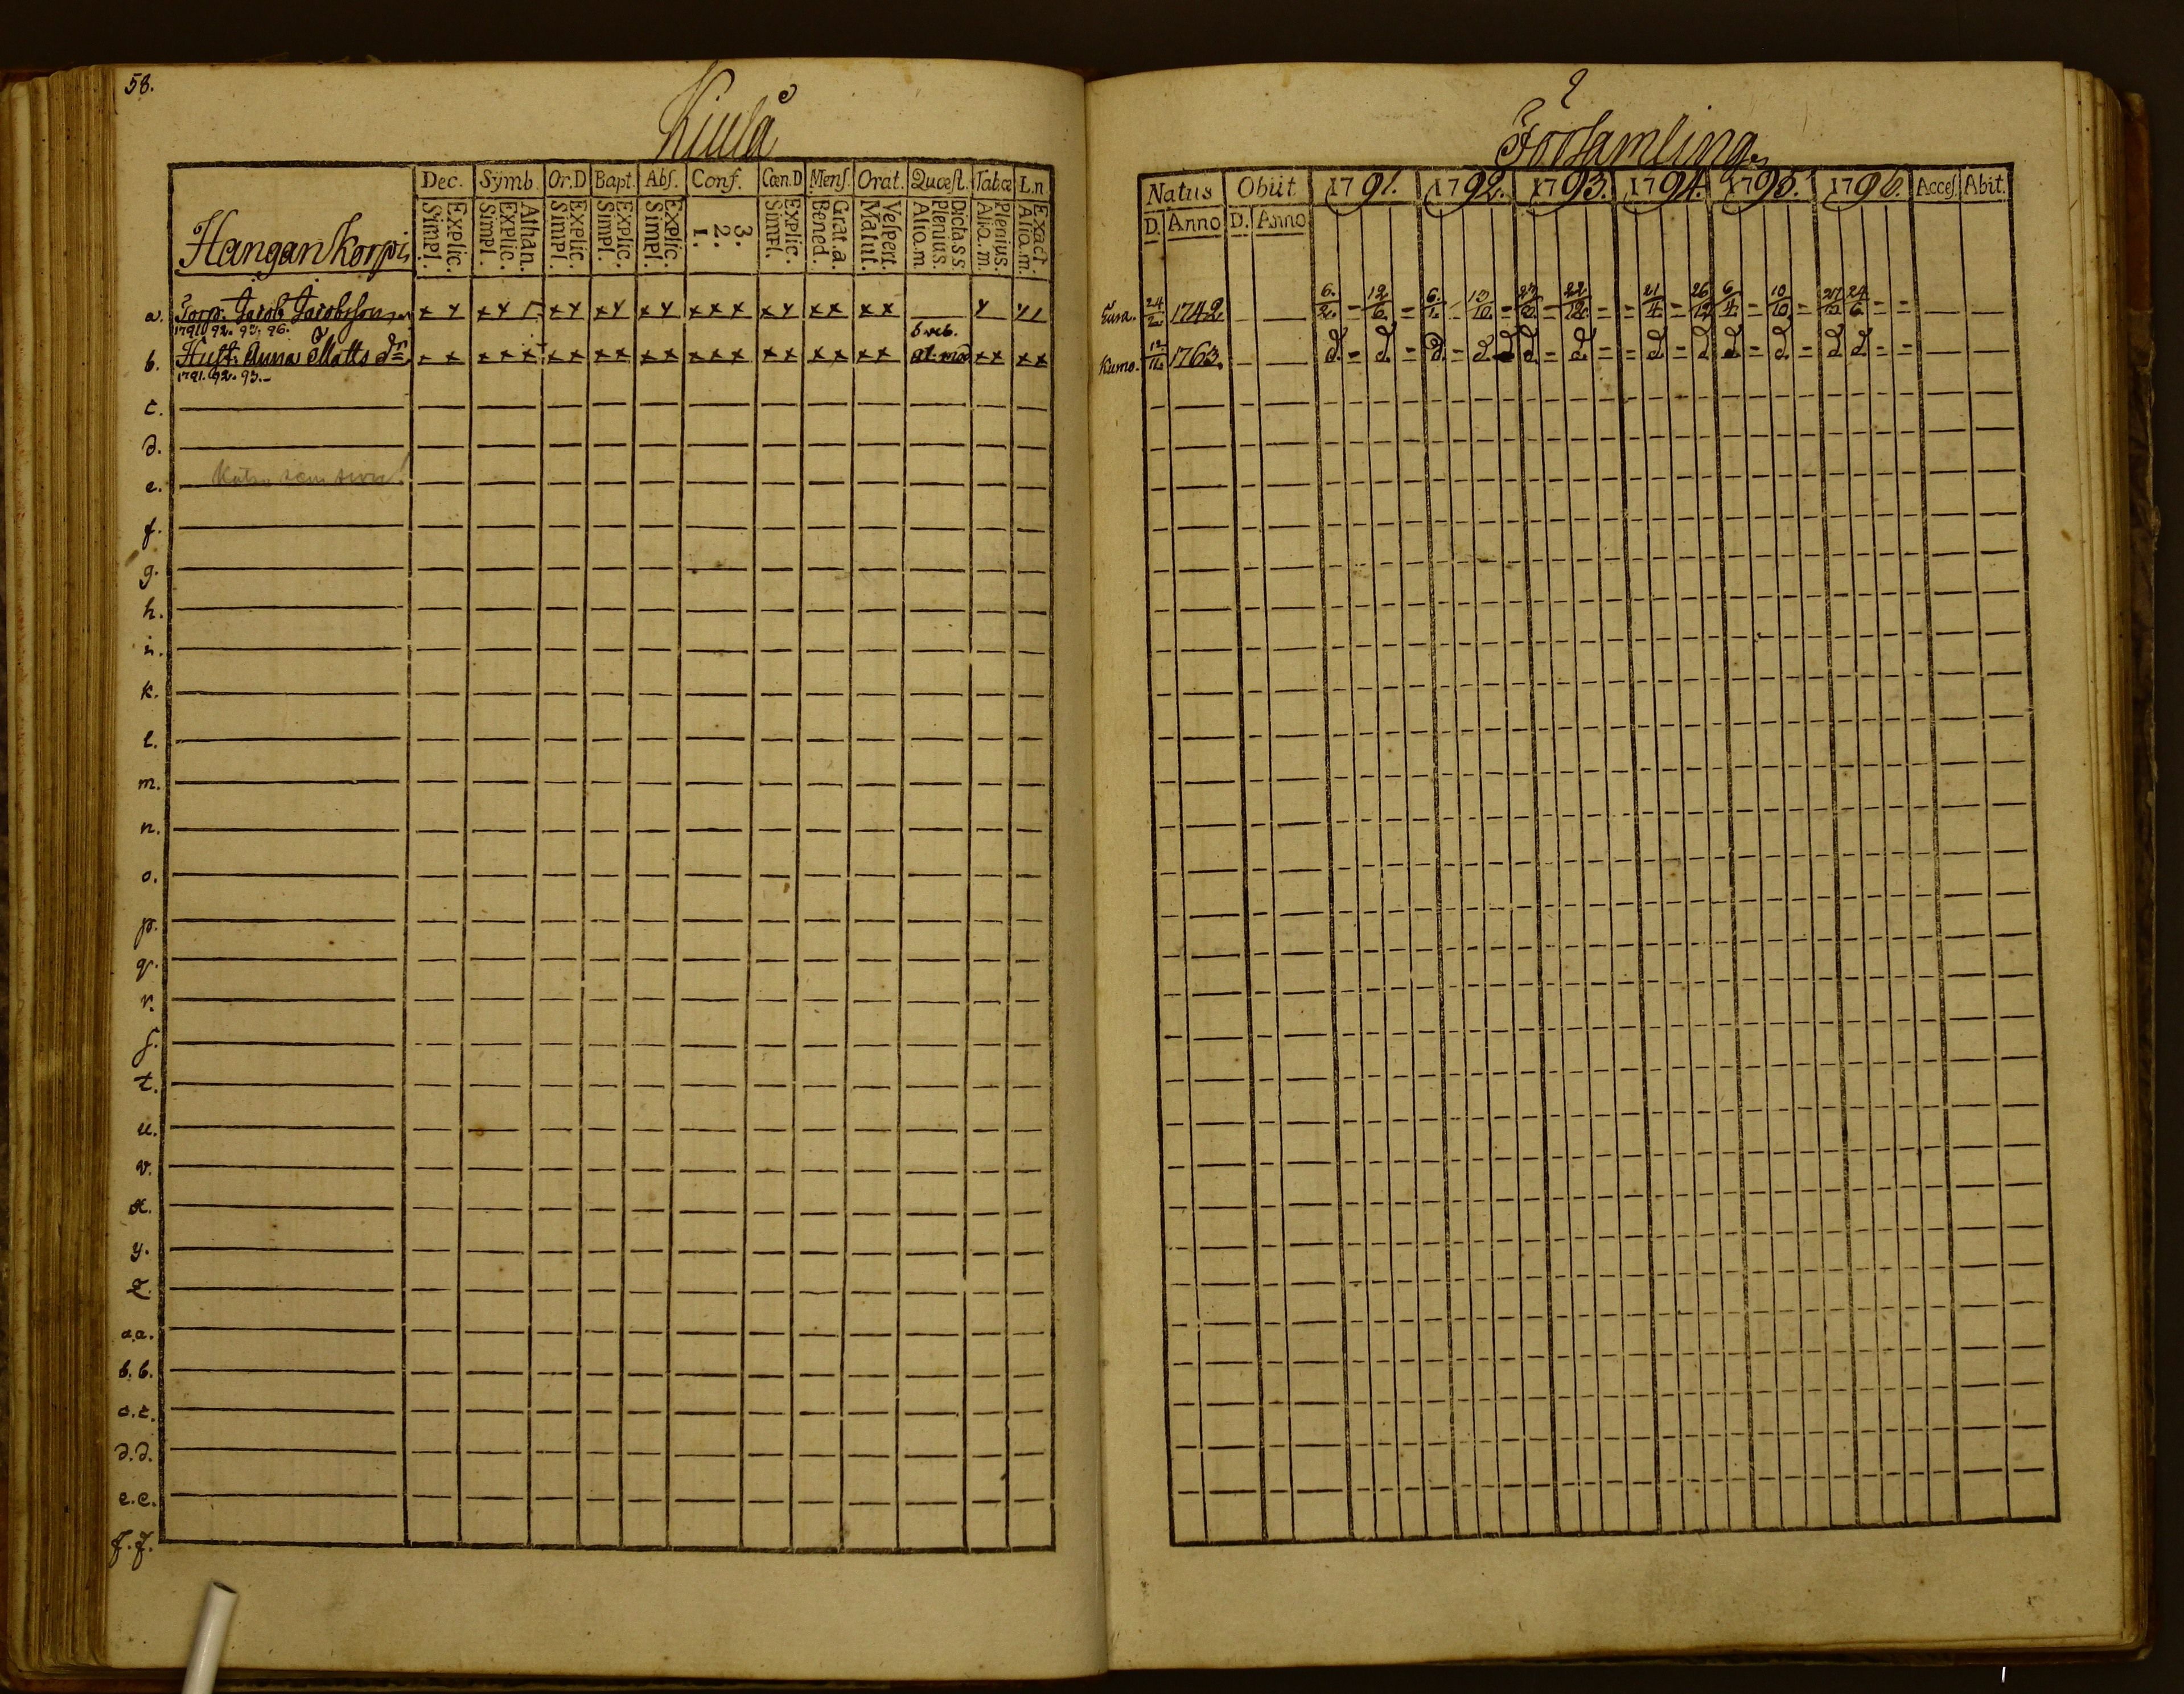 58.
Kiulå
Församling
Hangankorpi
Dec. Symb. Or.D Bapt. Abs. Conf. Cœn.D Mens. Orat. Quæst. Tabæ L.n
Explic. Simpl. Athan. Explic. Simpl. Explic. Simpl. Explic. Simpl. Explic. Simpl. 3. 2. 1. Explic. Simpl. Grat.a. Bened. Vespert. Matut. Dicta.s.s. Plenius. Aliq.m Plenius. Aliq.m. Exact. Aliq.m.
Natus Obiit 1791. 1792. 1793. 1794. 1795. 1796. Acces. Abit.
D. Anno D. Anno
a. Torp. Jacob Jacobsson x x x x x x x x x x x x x x x x x x x
Eura. 24/2 1742 6/2 12/6 6/1 13/10 22/12 21/4 26/12 6/4 10/10 24/6
1791. 92. 93. 96.
b. Hust. Anna Matts dr x x x x x x x x x x x x x x x x x x x x x x x x
Kumo. 1763. d. d. d. d. d. d. d. d. d. d. d. d. d.
1791. 92. 93.
c.
d.
e.
f.
g.
h.
i.
k.
l.
m.
n.
o.
p.
q.
r.
s.
t.
u.
v.
x.
y.
z.
a.a.
b.b.
c.c.
d.d.
e.e.
f.f.